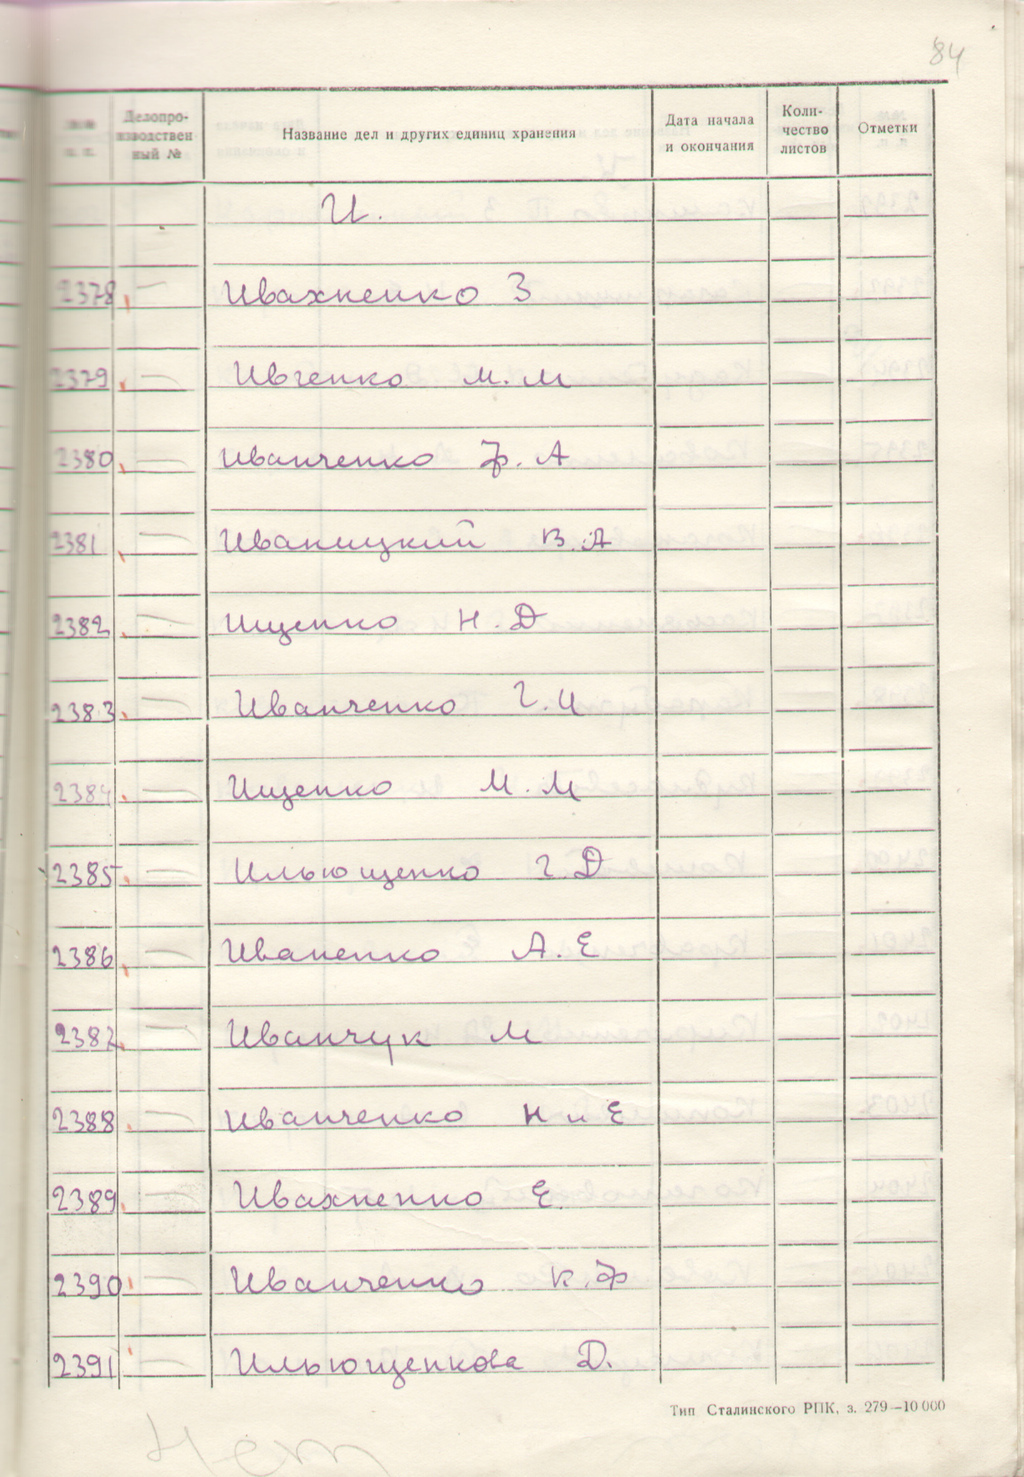 84
Делопро-
изводствен
ный №
Название дел и других единиц хранения
Дата начала
и окончания
Коли-
чество
листов
Отметки
И.
2378 Ивахненко З
2379 Ивченко М. М
2380 Иванченко Ф. А
2381 Иваницкий В. А
2382 Ищенко Н. Д
2383 Иванченко Г. И
2384 Ищенко М. М
2385 Ильющенко Г. Д
2386 Иваненко А. Е
2387 Иванчук М
2388 Иванченко Н и Е
2389 Ивахненко Е.
2390 Иванченко К. Ф
2391 Ильющенкова Д.
Тип Сталинского РПК, з. 279—10 000
Нет